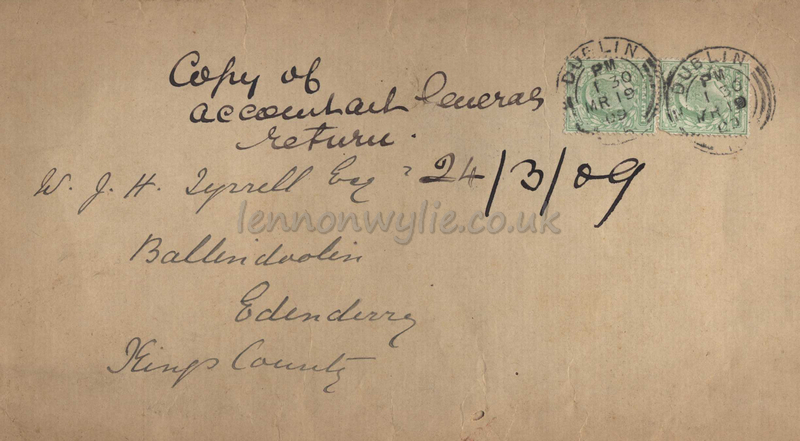 Copy of
accountant General
return.
24/3/09
W. J. H. Tyrrell Esq
Ballindoolin
Edenderry
Kings County
DUBLIN
PM
1 30
MR 19
09
DUBLIN
PM
lennonwylie.co.uk